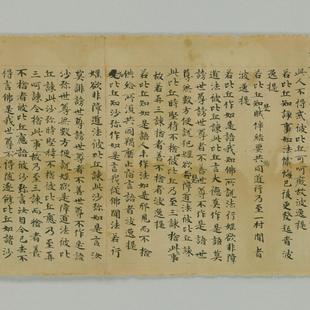 此人不得戒彼比丘可呵癡故波逸提
若比丘知諍事如法懺悔已後更發起者波
逸提
若比丘知賊伴結要共同道行乃至一村間者
波逸提
若比丘作如是語我知佛所說法行婬欲非障
道法彼比丘諫此比丘言大德莫作是語莫
謗世尊謗世尊者不善世尊不作是語世
尊無數方便說犯婬欲是障道法彼比丘諫
此比丘時堅持不捨彼比丘乃至三諫捨此事
故若再三諫捨者善不捨者波逸提
若比丘知如是語人未作法如是邪見而不捨
供給所須共同羯磨止宿言語者波逸提
若比丘知沙彌作如是言我從佛聞法若行
婬欲非障道法彼比丘諫此沙彌如是言汝
莫誹謗世尊謗世尊者不善世尊不作是語
沙彌世尊無數方便說婬欲是障道法彼比
丘諫此沙彌時堅持不捨彼比丘應乃至再
三呵諫令捨此事故乃至三諫而捨者善
不捨者彼比丘應語彼沙彌言汝自今已去不
得言佛是我世尊不得隨逐餘比丘如諸沙